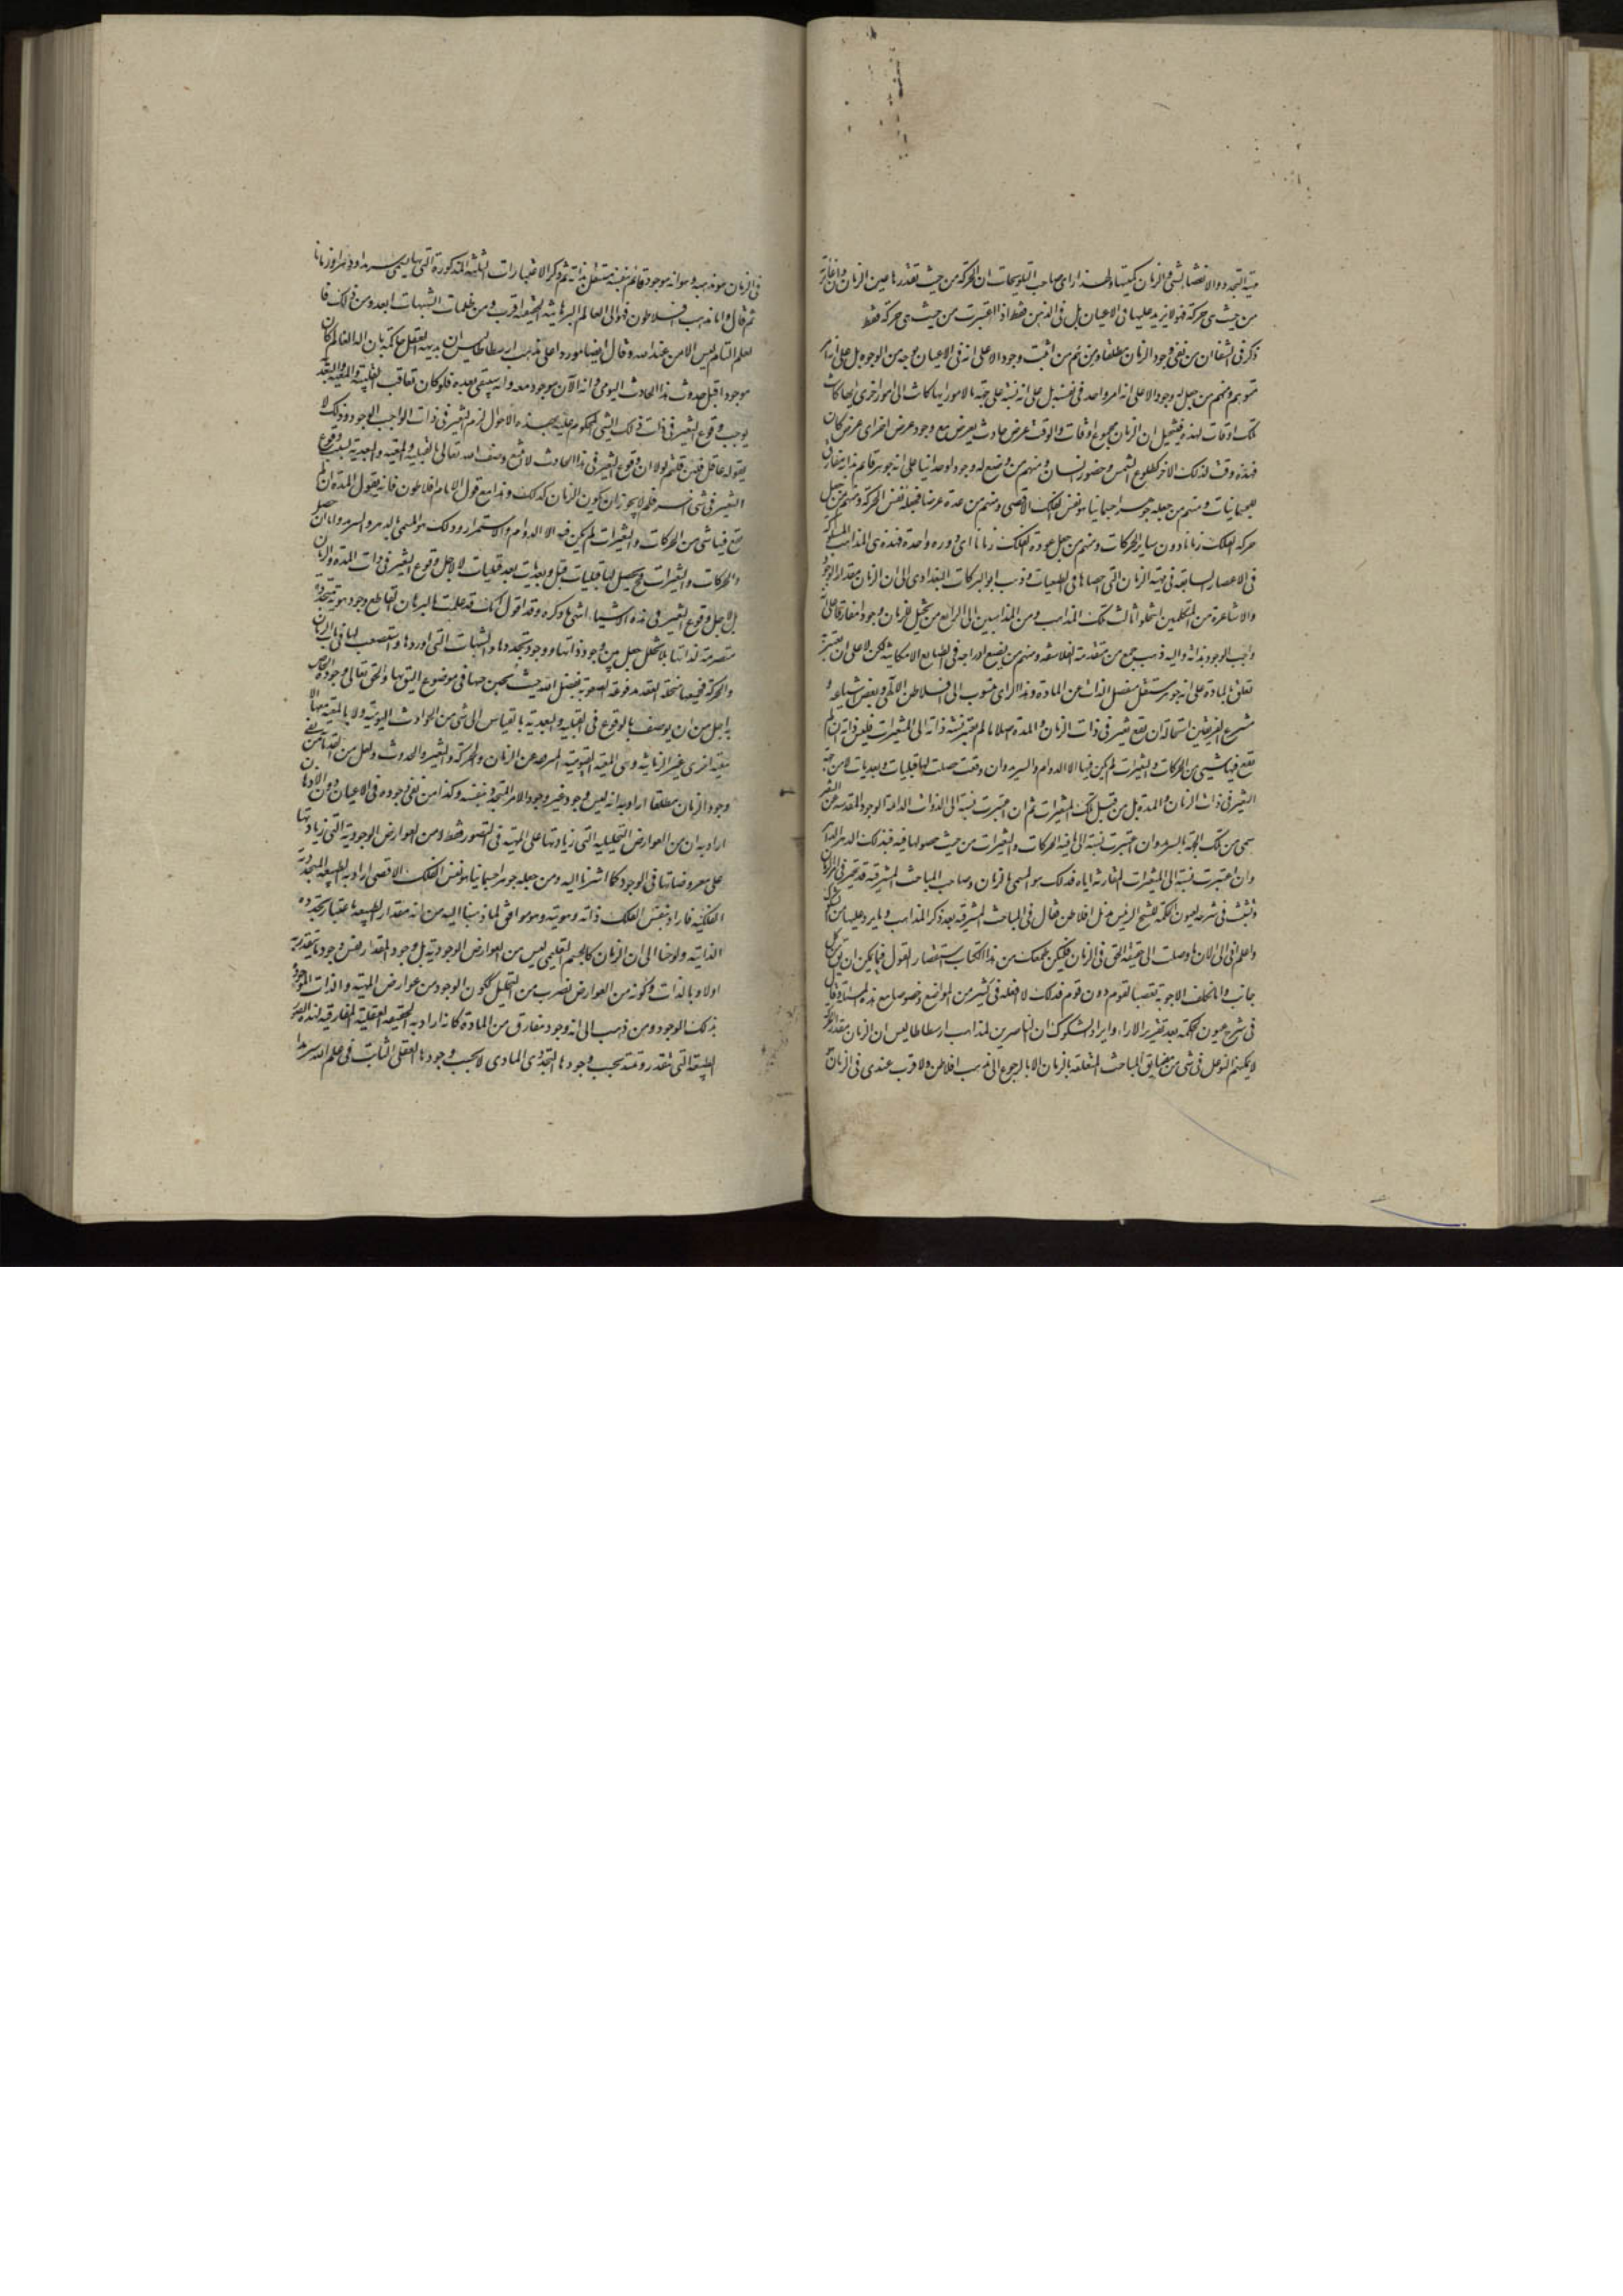 مهية التجدد والانقضاء لشئ والزمان كميتها ولهذا رأى صاحب التلويحات ان الحركة من حيث تقدرها عين الزمان وان غايرته
من حيث هي حركة فهو لا يزيد عليها في الاعيان بل في الذهن فقط اذا اعتبرت من حيث هي حركة فقط
ذكر في الشفا ان من نفى وجود الزمان مطلقا ومن ثم من اثبت وجودا لا على انه في الاعيان بوجه من الوجوه بل على انه امر
متوهم ومنهم من جعل له وجودا لا على انه امر واحد في نفسه بل على انه نسبة على جهة ما لامور ايها كانت الى امور اخرى ايها كانت
تلك اوقات لهذه فتخيل ان الزمان مجموع اوقات والوقت عرض حادث يعرض مع وجود عرض اخر اى عرض كان
فهذه وقت لذلك الاخر كطلوع الشمس وحضور انسان ومنهم من وضع له وجودا وحدانيا على انه جوهر قائم بذاته مفارق
للجسمانيات ومنهم من جعله جوهرا جسمانيا هو نفس الفلك الاقصى ومنهم من عده عرضا فجعله نفس الحركة ومنهم من جعل
حركة الفلك زمانا دون ساير الحركات ومنهم من جعل عودة الفلك زمانا اى دورة واحدة فهذه هي المذاهب المسلوكة
في الاعصار السابقة في مهية الزمان التي احصاها في الطبيعيات وذهب ابو البركات البغدادى الى ان الزمان مقدار الوجود
والاشاعرة من المتكلمين انتحلوا ثالث تلك المذاهب ومن الذاهبين الى الرابع من تخيل للزمان وجودا مفارقا على انه
واجب الوجود بذاته واليه ذهب جمع من متقدمة الفلاسفة ومنهم من يضع ادراجه في الطبايع الامكانية لكن لا على ان يعتبر به
تعلق بالمادة على انه جوهر مستقل منفصل الذات عن المادة وهذا الراى منسوب الى افلاطن الالهي وبعض اشياعه و
مشرع الفريقين استحالة ان يقع تغير في ذات الزمان والمدة اصلا ما لم يعتبر نسبة ذاته الى المتغيرات فليس ذاته ان لم
يقع فيها شيء من الحركات والتغيرات لم يكن فيها الا الدوام والسرمد وان وقعت حصلت لها قبليات وبعديات لا من جهة
التغير في ذات الزمان والمدة بل من قبل تلك المتغيرات ثم ان اعتبرت نسبته الى الذوات الدائمة الوجود المقدسة عن التغير
سمى من تلك الجهة بالسرمد وان اعتبرت نسبته الى ما فيه الحركات والتغيرات من حيث حصولها فيه فذلك الدهر الداهر
وان اعتبرت نسبته الى المتغيرات المقارنة اياه فذلك هو المسمى بالزمان وصاحب المباحث المشرقية قد تحير في امر الزمان
وتشبث في شرحه لعيون الحكمة للشيخ الرئيس بذيل افلاطن فقال في المباحث المشرقية بعد ذكر المذاهب وما يرد عليها من الشكوك
واعلم انى الى الان ما وصلت الى حقيقة الحق في الزمان فليكن طمعك من هذا الكتاب استقصاء القول فيما يمكن ان يق من كل
جانب واما تكلف الاجوبة تعصبا لقوم دون قوم فذلك لا افعله في كثير من المواضع وخصوصا مع هذه المسئلة وقال
في شرح عيون الحكمة بعد تقرير الاراء وايراد الشكوك ان الناصرين لمذاهب ارسطاطاليس ان الزمان مقدار الحركة
لا يمكنهم التوغل في شئ من مضايق المباحث المتعلقة بالزمان الا بالرجوع الى مذهب افلاطن والاقرب عندى في الزمان
في الزمان هو مذهبه وهو انه موجود قائم بنفسه مستقل بذاته ثم ذكر الاعتبارات الثلثة المذكورة التي بها يسمى سرمدا ودهرا وزمانا
ثم قال واما مذهب افلاطون فهو الى العالم البرهانية الحقيقية اقرب ومن ظلمات الشبهات ابعد ومن ذلك فا
لعلم التام ليس الا من عند الله وقال ايضا موردا على مذهب ارسطاطاليس ان بديهة العقل حاكمة بان اله العالم كان
موجودا قبل حدوث هذا الحادث اليومى وانه الآن موجود معه وانه سيبقى بعده فلو كان تعاقب القبلية والمعية والبعدية
يوجب وقوع التغير في ذات ذلك الشئ المحكوم عليه بهذه الاحوال لزم التغير في ذات الواجب الوجود وذلك لا
يقوله عاقل فان قلتم لولا ان وقوع التغير في هذا الحادث لامتنع وصف الله تعالى بالقبلية والمعية والبعدية بسبب وقوع
التغير في شئ اخر فلم لا يجوز ان يكون الزمان كذلك وهذا مع قول الامام افلاطون فانه يقول المدة ان لم
يقع فيها شئ من الحركات والتغيرات لم يكن فيه الا الدوام والاستمرار وذلك هو المسمى بالدهر والسرمد واما ان حصل
والحركات والتغيرات فح يحصل لها قبليات قبل وبعديات بعد قبليات لا لاجل وقوع التغير في ذات المدة والزمان
بل لاجل وقوع التغير في هذه الاشياء انتهى ما ذكره وقد اقول انك قد علمت بالبرهان القاطع وجود هوية متجددة
متصرمة لذاتها بلا تخلل جعل بين وجود ذاتها ووجود تجددها والشبهات التي اوردها واستصعب لها في باب الزمان
والحركة فجميعها منحلة العقد مدفوعة الصعوبة بفضل الله حيث يحين حينها في موضوع اليق بها والحق تعالى وجوده الخاص
به اجل من ان يوصف بالوقوع في القبلية والبعدية بالقياس الى شئ من الحوادث اليومية ولا بالمعية معها الا
معية اخرى غير الزمانية وهي المعية القيومية المنزهة عن الزمان والحركة والتغير والحدوث ولعل من القدماء من نفى
وجود الزمان مطلقا اراد به انه ليس له وجود غير وجود الامر المتجدد بنفسه وكذا من نفى وجوده في الاعيان دون الاذهان
اراد به ان من العوارض التحليلية التي زيادتها على المهية في التصور فقط ومن العوارض الوجودية التي زيادتها
على معروضاتها في الوجود كما اشرنا اليه ومن جعله جوهرا جسمانيا هو نفس الفلك الاقصى اراد به الطبيعة المتجددة
الفلكية فاراد بنفس الفلك ذاته وهويته وهو موافق لما ذهبنا اليه من انه مقدار الطبيعة باعتبار تجدده
الذاتية ولوحنا الى ان الزمان كالجسم التعليمى ليس من العوارض الوجودية بل وجود المقدار نفس وجود ما يتقدر به
اولا وبالذات وكونه من العوارض بضرب من التحليل ككون الوجود من عوارض المهية والذات الموجودة
بذلك الوجود ومن ذهب الى انه وجود مفارق من المادة كانه اراد به الحقيقة العقلية المفارقية لهذه الصورة
الطبيعة التي تتقدر وتمتد بحسب وجودها التجددى المادى لا بحسب وجودها العقلى الثابت في علم الله سرمدا